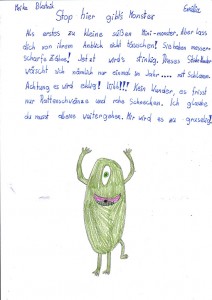 Meike Emilie
Stop hier gibts Monster
Als erstes zu kleine süßen Mini-monster. Aber lass
dich von ihrem Anblick nicht täuschen! Sie haben messer-
scharfe Zähne! Jetzt wird's stinkig. Dieses Stink Monster
wäscht sich nämlich nur einmal im Jahr.... mit Schlamm.
Achtung es wird eklig! Iiihh!!! Kein Wunder, es frisst
nur Rattenschwänze und rohe Schnecken. Ich glaube
du musst alleine weitergehen. Mir wird es zu gruselig!